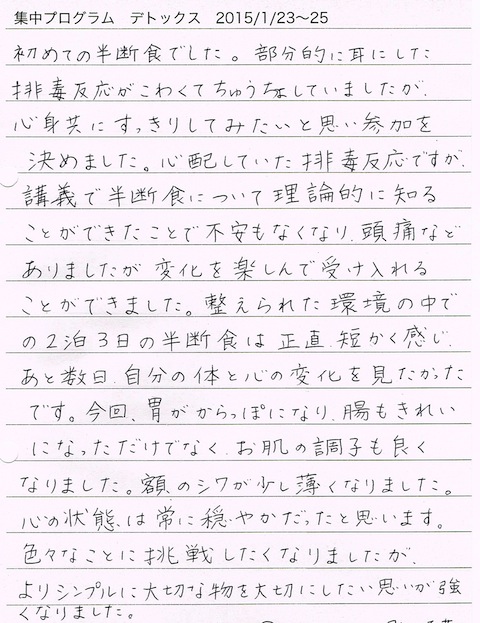 集中プログラム　デトックス　2015/1/23〜25
初めての半断食でした。部分的に耳にした
排毒反応がこわくてちゅうちょしていましたが、
心身共にすっきりしてみたいと思い参加を
決めました。心配していた排毒反応ですが、
講義で半断食について理論的に知る
ことができたことで不安もなくなり、頭痛など
ありましたが変化を楽しんで受け入れる
ことができました。整えられた環境の中で
の2泊3日の半断食は正直、短かく感じ、
あと数日、自分の体と心の変化を見たかった
です。今回、胃がからっぽになり、腸もきれい
になっただけでなく、お肌の調子も良く
なりました。額のシワが少し薄くなりました。
心の状態は常に穏やかだったと思います。
色々なことに挑戦したくなりましたが、
よりシンプルに大切な物を大切にしたい思いが強
くなりました。